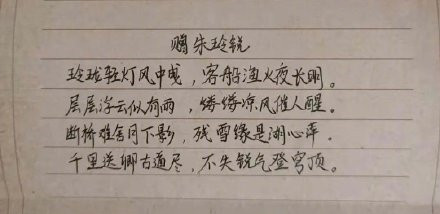 赠朱玲锐
玲珑轻灯风中或，客船渔火夜长明。
层层浮云似有雨，缕缕凉风催人醒。
断桥难舍月下影，残雪缘是湖心萍。
千里送卿古道尽，不失锐气登穹顶。